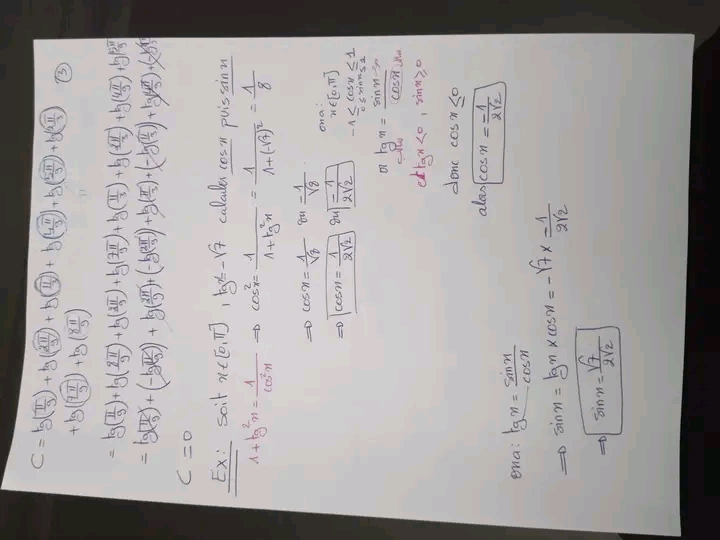 ③
C = tg(π/9) + tg(2π/9) + tg(π/3) + tg(4π/9) + tg(5π/9) + tg(2π/3)
+ tg(7π/9) + tg(8π/9)
= tg(π/9) + tg(8π/9) + tg(2π/9) + tg(7π/9) + tg(π/3) + tg(2π/3) + tg(4π/9) + tg(5π/9)
= tg(π/9) + (-tg(π/9)) + tg(2π/9) + (-tg(2π/9)) + tg(π/3) + (-tg(π/3)) + tg(4π/9) + (-tg(4π/9))
C = 0
Ex: soit x∈[0,π], tgx=-√7 calculer cosx puis sin x
1+tg²x = 1/cos²x ⇒ cos²x = 1/(1+tg²x) = 1/(1+(-√7)²) = 1/8
⇒ cosx = 1/√8 ou -1/√8
⇒ cosx = 1/2√2 ou -1/2√2
on a:
x∈[0,π]
-1 ≤ cosx ≤ 1
0 ≤ sinx ≤ 1
or tgx = sinx/cosx
et tgx<0, sinx≥0
donc cosx ≤0
alors cosx = -1/2√2
on a: tgx = sinx/cosx
⇒ sinx = tgx × cosx = -√7 × -1/2√2
⇒ sinx = √7/2√2